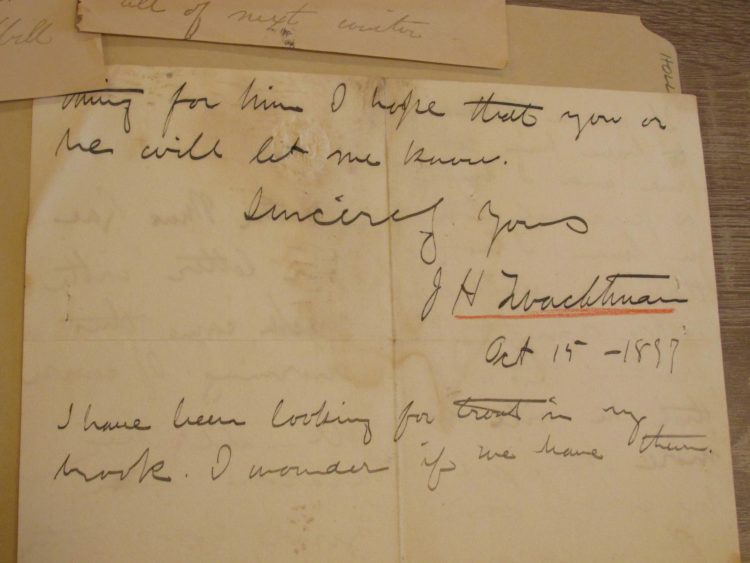 bell
all of next winter
HOLL
thing for him I hope that you or
he will let me know.
Sincerely Yours
J H Twachtman
Oct 15 - 1897
I have been looking for trout in my
brook. I wonder if we have them.